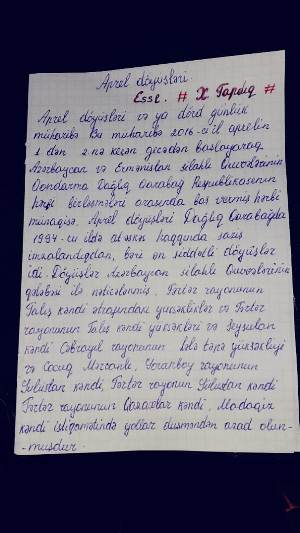 Aprel döyüşləri.
Esse. # X Tapdıq #
Aprel döyüşləri və ya dörd günlük
müharibə Bu müharibə 2016-cı il aprelin
1 dən 2 nə keçən gecədən başlayaraq
Azərbaycan və Ermənistan silahlı Quvvələrinin
Qondarma Dağlıq Qarabağ Respublikasının
hərbi birləşmələri arasında baş vermiş hərbi
münaqişə. Aprel döyüşləri Dağlıq Qarabağda
1994-cü ildə atəşkəs haqqında saziş
imzalandıqdan, bəri ən şiddətli döyüşlər
idi. Döyüşlər Azərbaycan silahlı Quvvələrinin
qələbəsi ilə nəticələnmiş, Tərtər rayonunun
Talış kəndi ətrafındakı yüksəkliklər və Tərtər
rayonunun Talış kəndi yüksəkləri və Seysulan
kəndi Cəbrayıl rayonunun Lələ təpə yüksəkliyi
və Cocuq Mərcanlı, Goranboy rayonunun
Gülüstan kəndi, Tərtər rayonun Gülüstan kəndi
Tərtər rayonunun Qaraxanbəy kəndi, Madagiz
kəndi istiqamətində yollar düşməndən azad olun-
-muşdur.